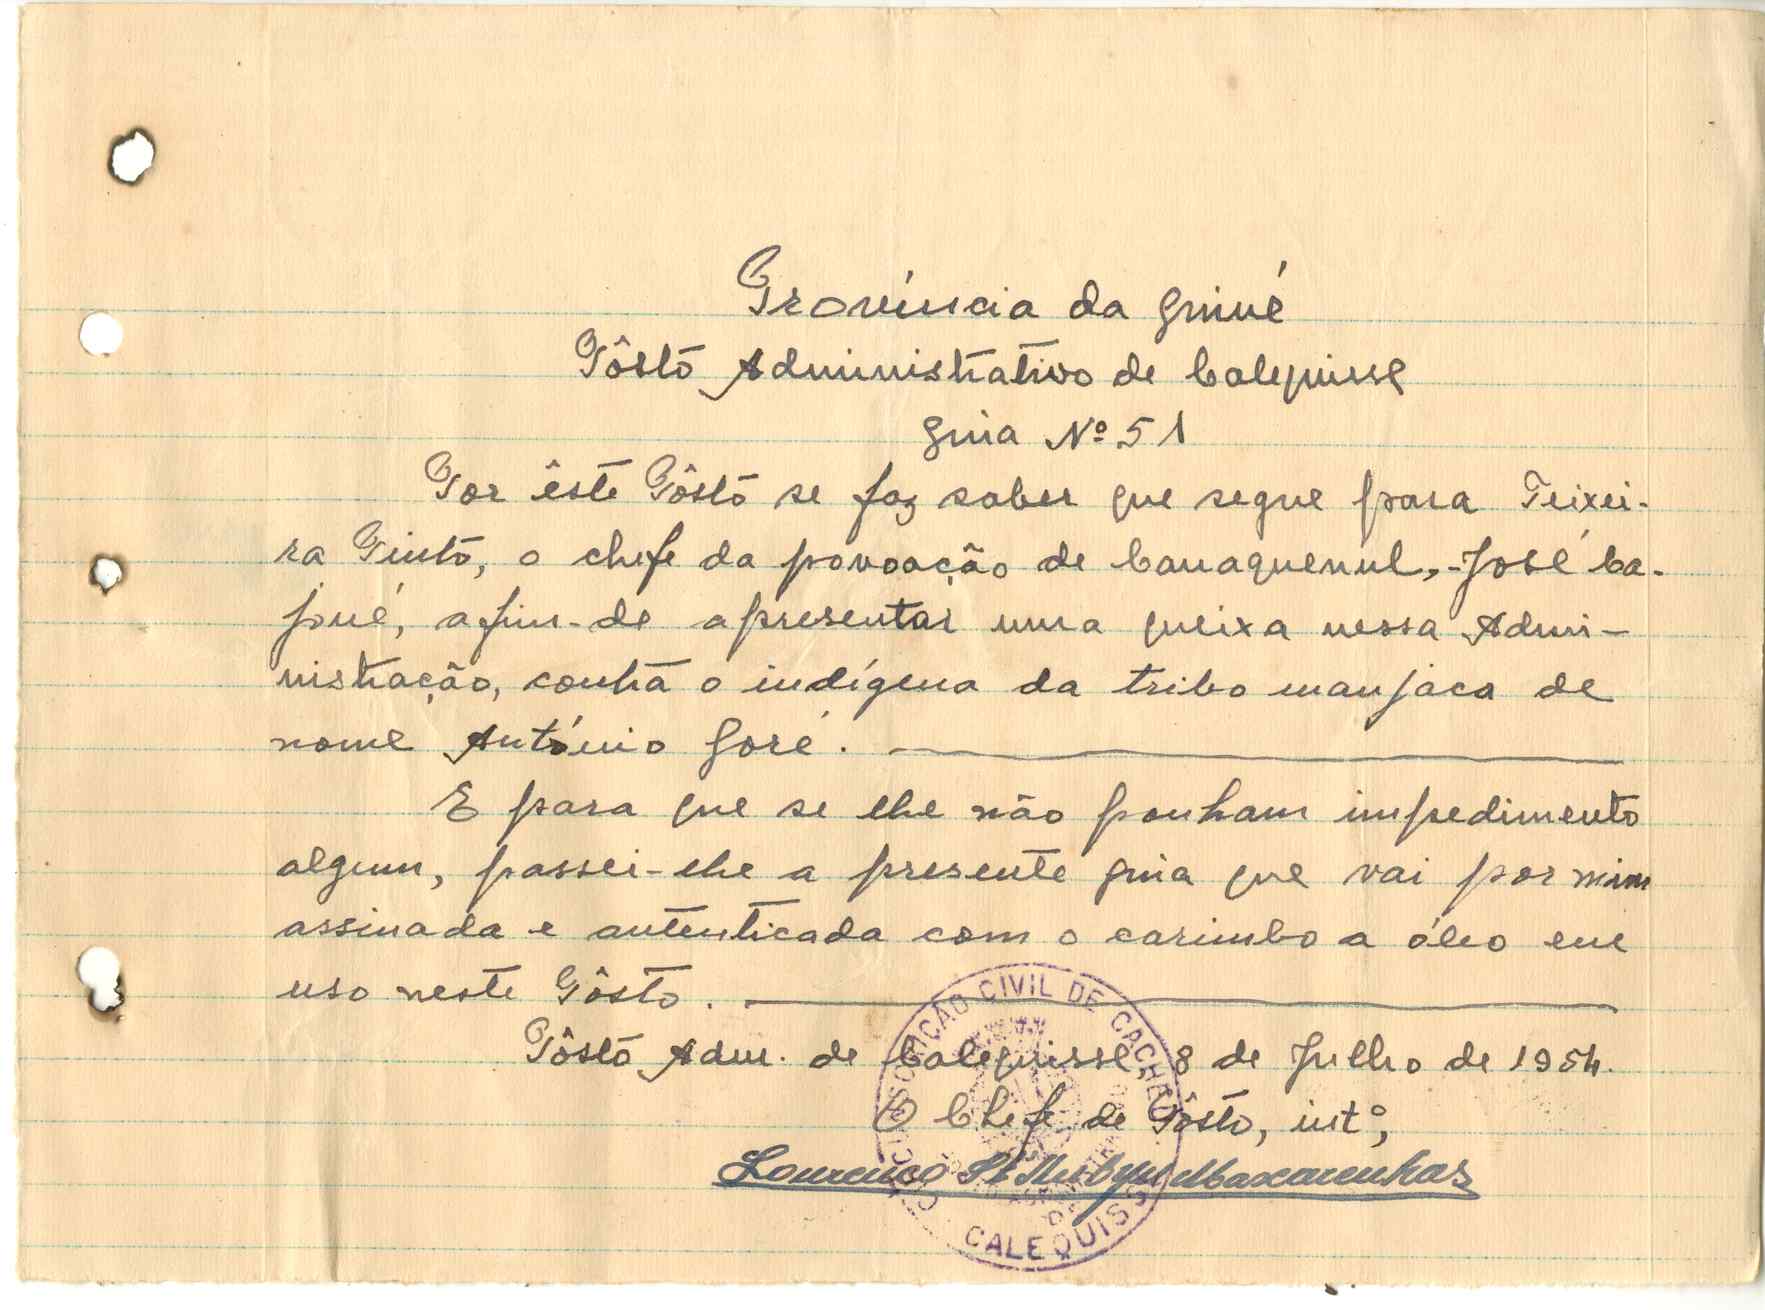 Província da Guiné
Pôsto Administrativo de Calequisse
Guia Nº 51
Por êste Pôsto se faz saber que segue para Teixei-
ra Pinto, o chefe da povoação de Canaquenul, -José Ca-
pué, afim-de apresentar uma queixa nessa Admi-
nistração, contra o indígena da tribo manjaca de
nome António Goré.
E para que se lhe não ponham impedimento
algum, passei-lhe a presente guia que vai por mim
assinada e autenticada com o carimbo a óleo em
uso neste Pôsto.
Pôsto Adm. de Calequisse, 8 de Julho de 1954.
O Chefe de Pôsto, intº,
Lourenço Mascarenhas
CIRCUNSCRIÇÃO CIVIL DE CACHEU
CALEQUISSE